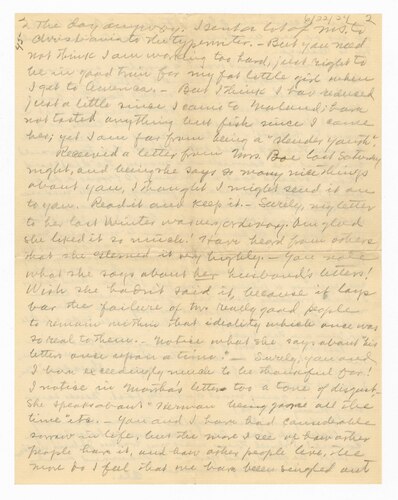 6/22/24 2
the day anyway. I sent a lot of ms. to
Christiania to the typewriter. – But you need
not think I am working too hard, just right to
be in good trim for my fat little girl when
I get to America. – But I think I have reduced
just a little since I came to Norland; have
not tasted anything but fish since I came
her; yet I am far from being a "slender youth".
Received a letter from Mrs. Boe last Saturday
night, and being she says so many nice things
about you, I thought I might send it on
to you. Read it and keep it. – Surely, my letter
to her last Winter was very ordinary. Am glad
she liked it so much! I have heard from others
that she esteemed it very highly. – You note
what she says about her husband's letters!
Wish she hadn't said it, because it lays
bar the failure of two really good people
to remain within that ideality which once was
so real to them. – Notice what she says about "his
letters once upon a time". – Surely, you and
I have exceedingly much to be thankful for!
I notice in Martha's letter too a tone of disgust,
she speaks about "Herman being gone all the
time" etc. – You and I have had considerable
sorrow in life, but the more I see of how other
people have it, and how other people live, the
more do I feel that we have been singled out